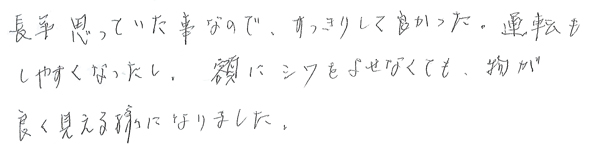 長年思っていた事なので、すっきりして良かった。運転も
しやすくなったし、額にシワをよせなくても、物が
良く見える様になりました。